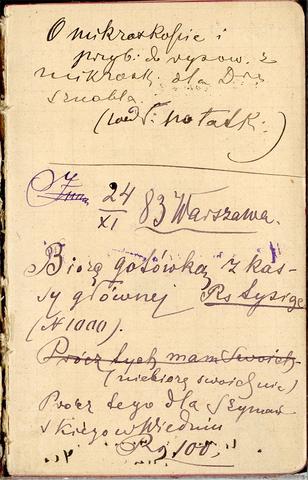 O mikroskopie i
przyb. do rysow. z
mikrosk. dla Dra
Sznabla.
(
notatk.)
24
XI 83 Warszawa.
Biorę gotówką z kas-
sy głównej Rs tysiąc
(N 1000).
Prócz tych mam swoich
(niebiorę swoich nic)
Prócz tego dla Szyma-
skiego w Wiedniu
Rs 100,